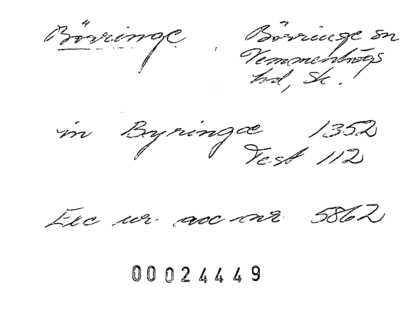 Börringe
Börringe sn
Vemmenhögs
hd, Sk.
in Byringæ 1352
Test 112
Exc ur acc nr 5862
00024449